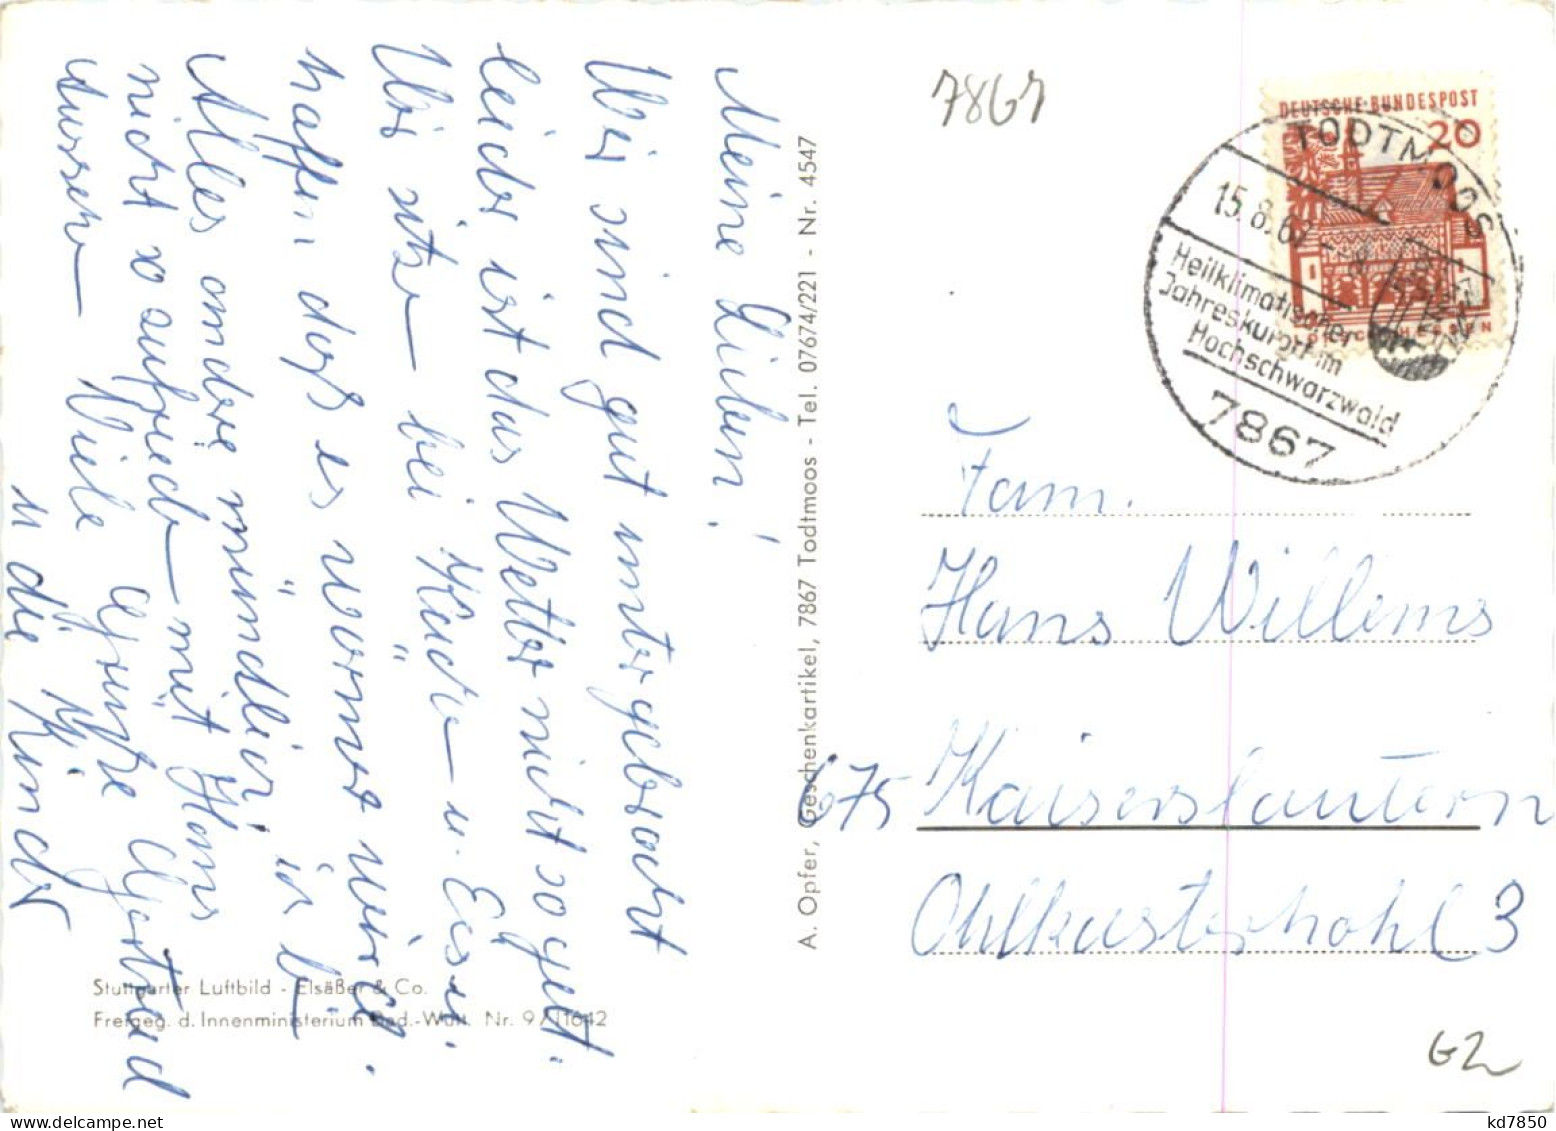 Meine Lieben!
Wir sind gut untergebracht
leider ist das Wetter nicht so gut.
Wir sitzen bei Kuchen u. Eis u.
hoffen das es wärmer wird.
Alles andere mündlich, ich bin
nicht so zufrieden mit Hans
Aussehen Viele Grüße Gertrud
u die Kinder
Stuttgarter Luftbild - Elsäßer & Co.
Freigeg. d. Innenministerium Bad.-Württ. Nr. 9/11642
A. Opfer, Geschenkartikel, 7867 Todtmoos - Tel. 07674/221 - Nr. 4547
7867
DEUTSCHE BUNDESPOST
20
TODTMOOS
15.8.67
Heilklimatischer
Jahreskurort im
Hochschwarzwald
7867
Fam.
Hans Willems
675 Kaiserslautern
Ohlkasterhohl 3
GZ
kd7850